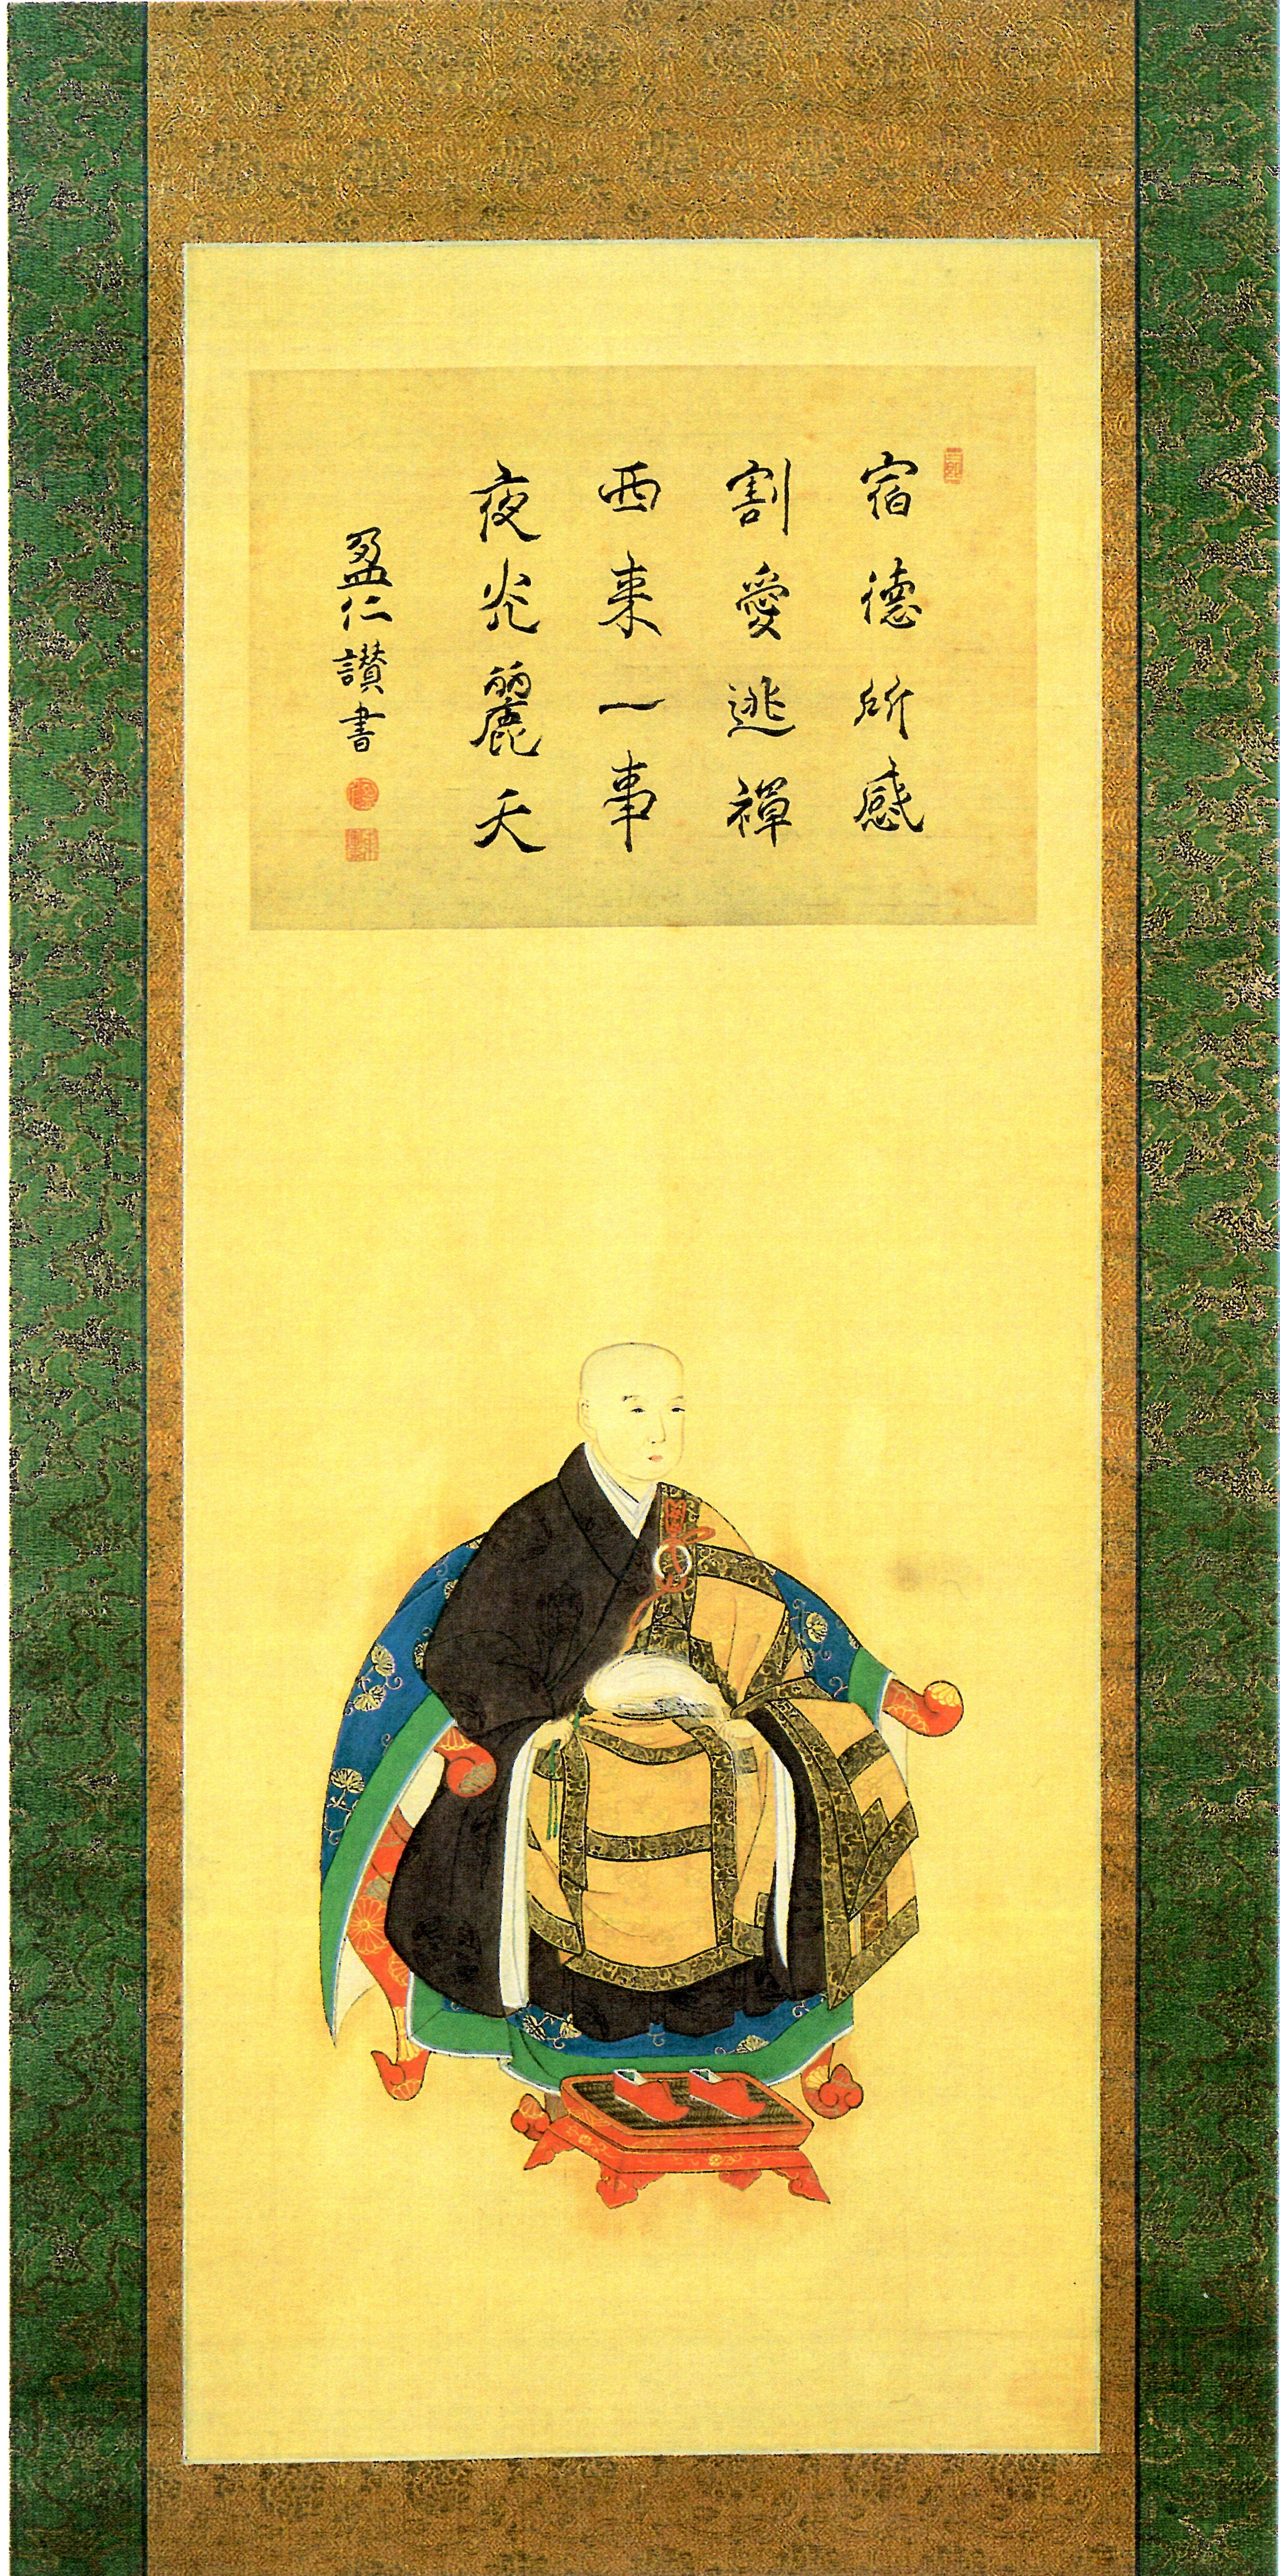 宿德所感
割愛逃禅
西来一事
夜光麗天
盈仁讃書